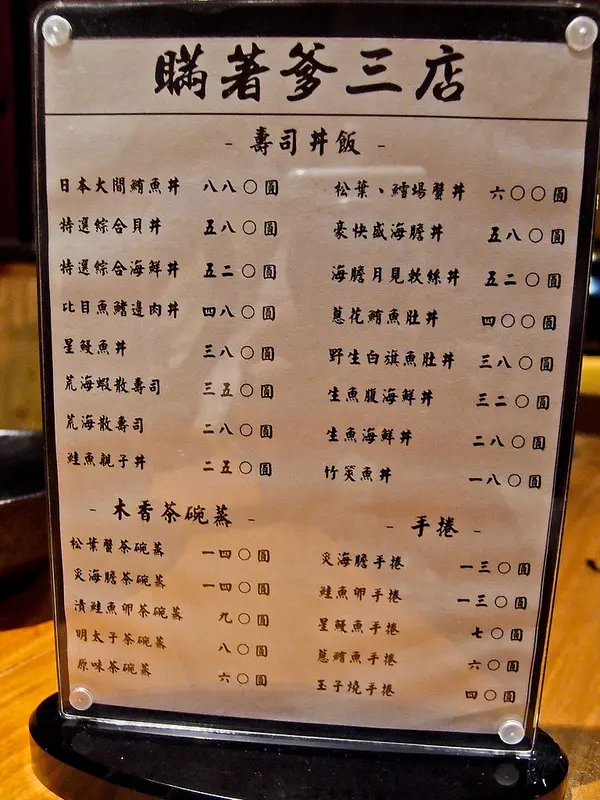 瞞著爹三店
- 壽司丼飯 -
日本大間鮪魚丼 八八〇圓
特選綜合貝丼 五八〇圓
特選綜合海鮮丼 五二〇圓
比目魚鰭邊肉丼 四八〇圓
星鰻魚丼 三八〇圓
荒海蝦散壽司 三五〇圓
荒海散壽司 二八〇圓
鮭魚親子丼 二五〇圓
松葉、鱈場蟹丼 六〇〇圓
豪快盛海膽丼 五八〇圓
海膽月見軟絲丼 五二〇圓
蔥花鮪魚肚丼 四〇〇圓
野生白旗魚肚丼 三八〇圓
生魚腹海鮮丼 三二〇圓
生魚海鮮丼 二八〇圓
竹筴魚丼 一八〇圓
- 木香茶碗蒸 -
松葉蟹茶碗蒸 一四〇圓
炙海膽茶碗蒸 一四〇圓
漬鮭魚卵茶碗蒸 九〇圓
明太子茶碗蒸 八〇圓
原味茶碗蒸 六〇圓
- 手捲 -
炙海膽手捲 一三〇圓
鮭魚卵手捲 一三〇圓
星鰻魚手捲 七〇圓
蔥鮪魚手捲 六〇圓
玉子燒手捲 四〇圓